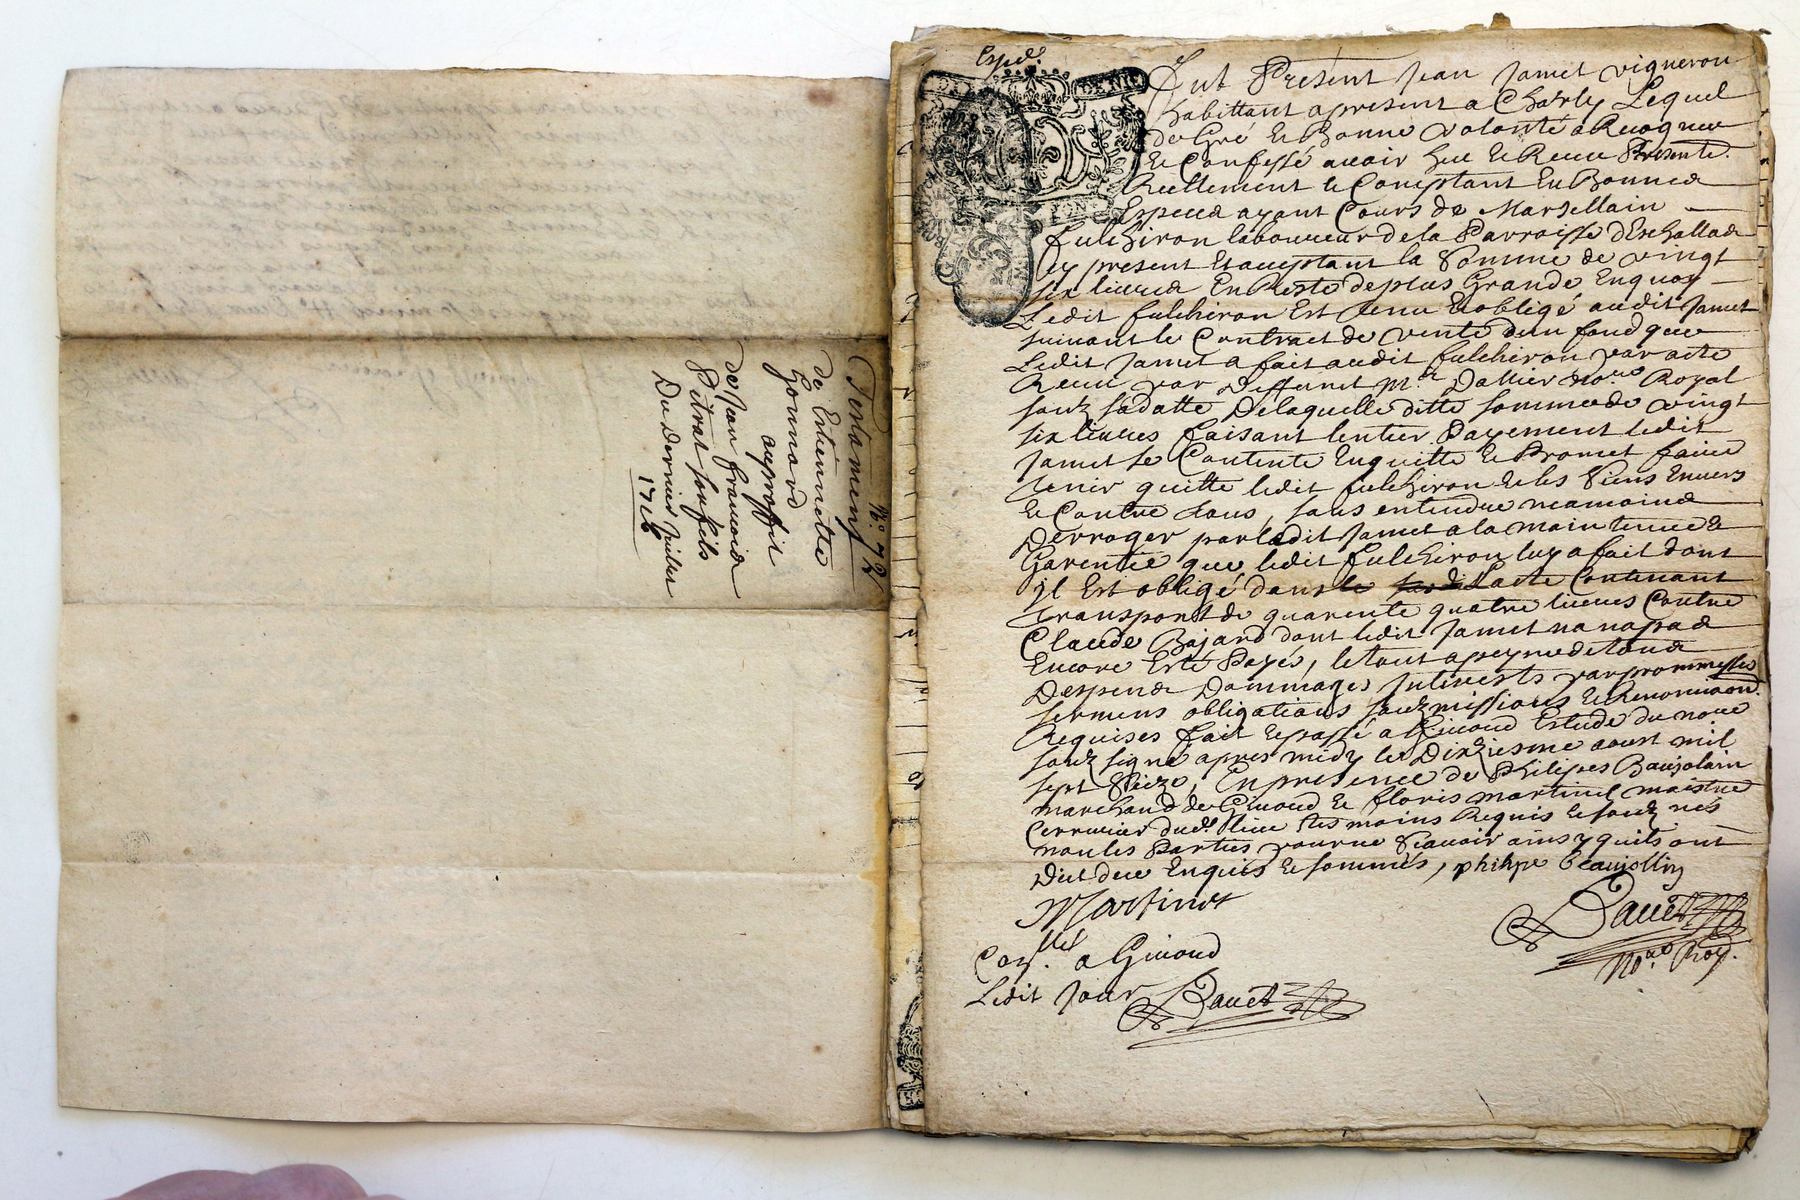 N.º 72
Testament
de Estiennette
Gonnard
au proffit
de Jean francois
Pitrat son fils
Du Dernier Juillet
1716
Exped.
DENIE
Fut Présent Jean Jamet vigneron
habittant apresent a Charly Lequel
de Gré et Bonne volonté a Recogneu
et Confessé avoir heu et Receu Presente.
Reellement et Comptant En Bonnes
Especes ayant Cours de Marsellain
fulchiron laboureur de la Parroisse d'Eschallas
icy present et acceptant la Somme de vingt
six livres En Reste de plus Grande En quoy
Ledit fulchiron Est tenu et obligé audit Jamet
suivant le Contract de vente d'un fond que
Ledit Jamet a fait audit fulchiron par acte
Receu par deffunct M.e Dallier no.re Royal
souz sa datte De laquelle ditte somme de vingt
six livres faisant lentier payement ledit
Jamet se Contente En quitte et Promet faire
tenir quitte ledit fulchiron et les Siens Envers
et Contre tous, sans entendre neamoins
Derroger par ledit Jamet a la maintenue et
Garentie que ledit fulchiron luy a fait dont
il Est obligé dans l'acte Contenant
transport de quarente quatre livres Contre
Claude Bajard dont ledit Jamet na pas
Encore Esté Payés, le tout a peyne de tous
Despens Dommages Interests par prommesses
sermens obligations souzmissions et Renonciaon.
Requises fait et passé a Givord Estude du no.re
souzsigné apres midy le Dixiesme aoust mil
sept Seize, En presence de Philipes Baujolain
marchand de Givord et floris martinet maistre
Cerrurier dud. lieu tesmoins Requis et souz nes
non les Parties pour ne Scavoir ainsy quils ont
Dict de ce Enquis et sommés, philipe beaujollin
Martinet
no.re Roy.
Con.llé a Givord
Ledit Jour